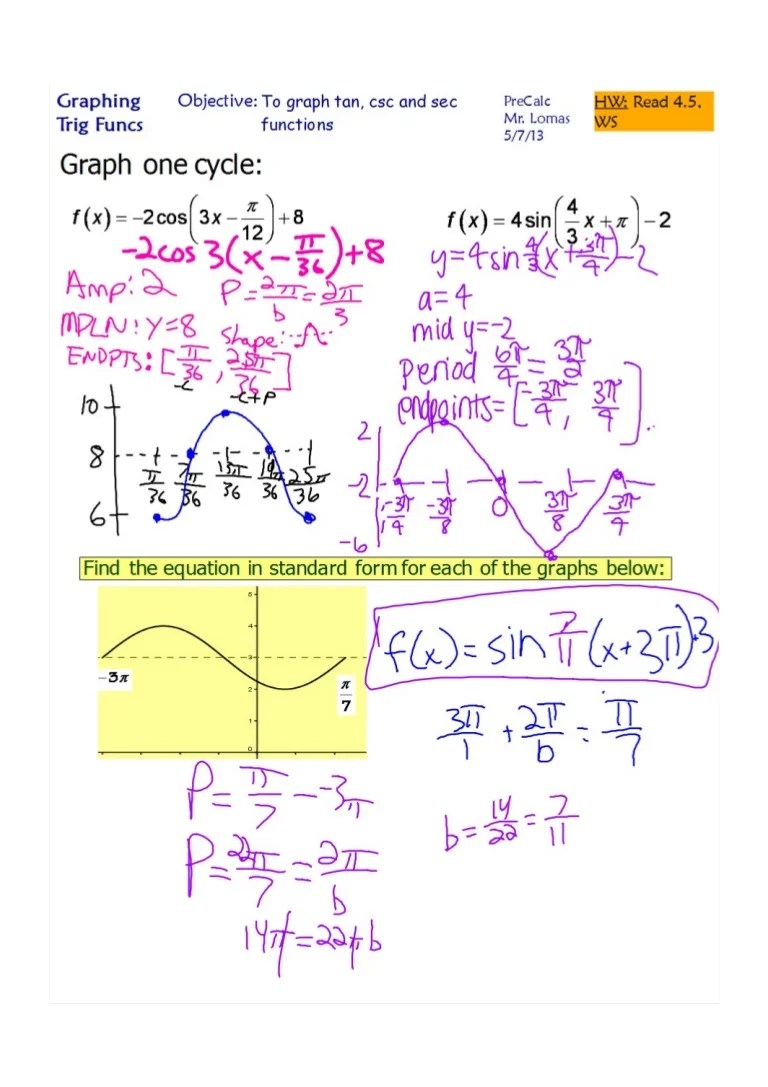 Graphing
Trig Funcs
Objective: To graph tan, csc and sec
functions
PreCalc
Mr. Lomas
5/7/13
HW: Read 4.5,
WS
Graph one cycle:
f(x) = -2cos(3x - π/12) + 8
-2cos 3(x - π/36) + 8
Amp: 2
P = 2π/b = 2π/3
MDLN: Y=8
Shape:
ENDPTS: [π/36, 25π/36]
-c
-c+P
10
8
6
π/36
7π/36
13π/36
19π/36
25π/36
f(x) = 4sin(4/3 x + π) - 2
y=4sin 4/3(x + 3π/4) - 2
a=4
mid y=-2
Period 6π/4 = 3π/2
endpoints = [-3π/4, 3π/4].
2
-2
-6
-3π/4
-3π/8
0
3π/8
3π/4
Find the equation in standard form for each of the graphs below:
5
4
3
2
1
0
-3π
π/7
f(x) = sin 7/11 (x+3π)+3
3π/1 + 2π/b = π/7
P = π/7 - -3π
P = 22π/7 = 2π/b
14π = 22πb
b = 14/22 = 7/11